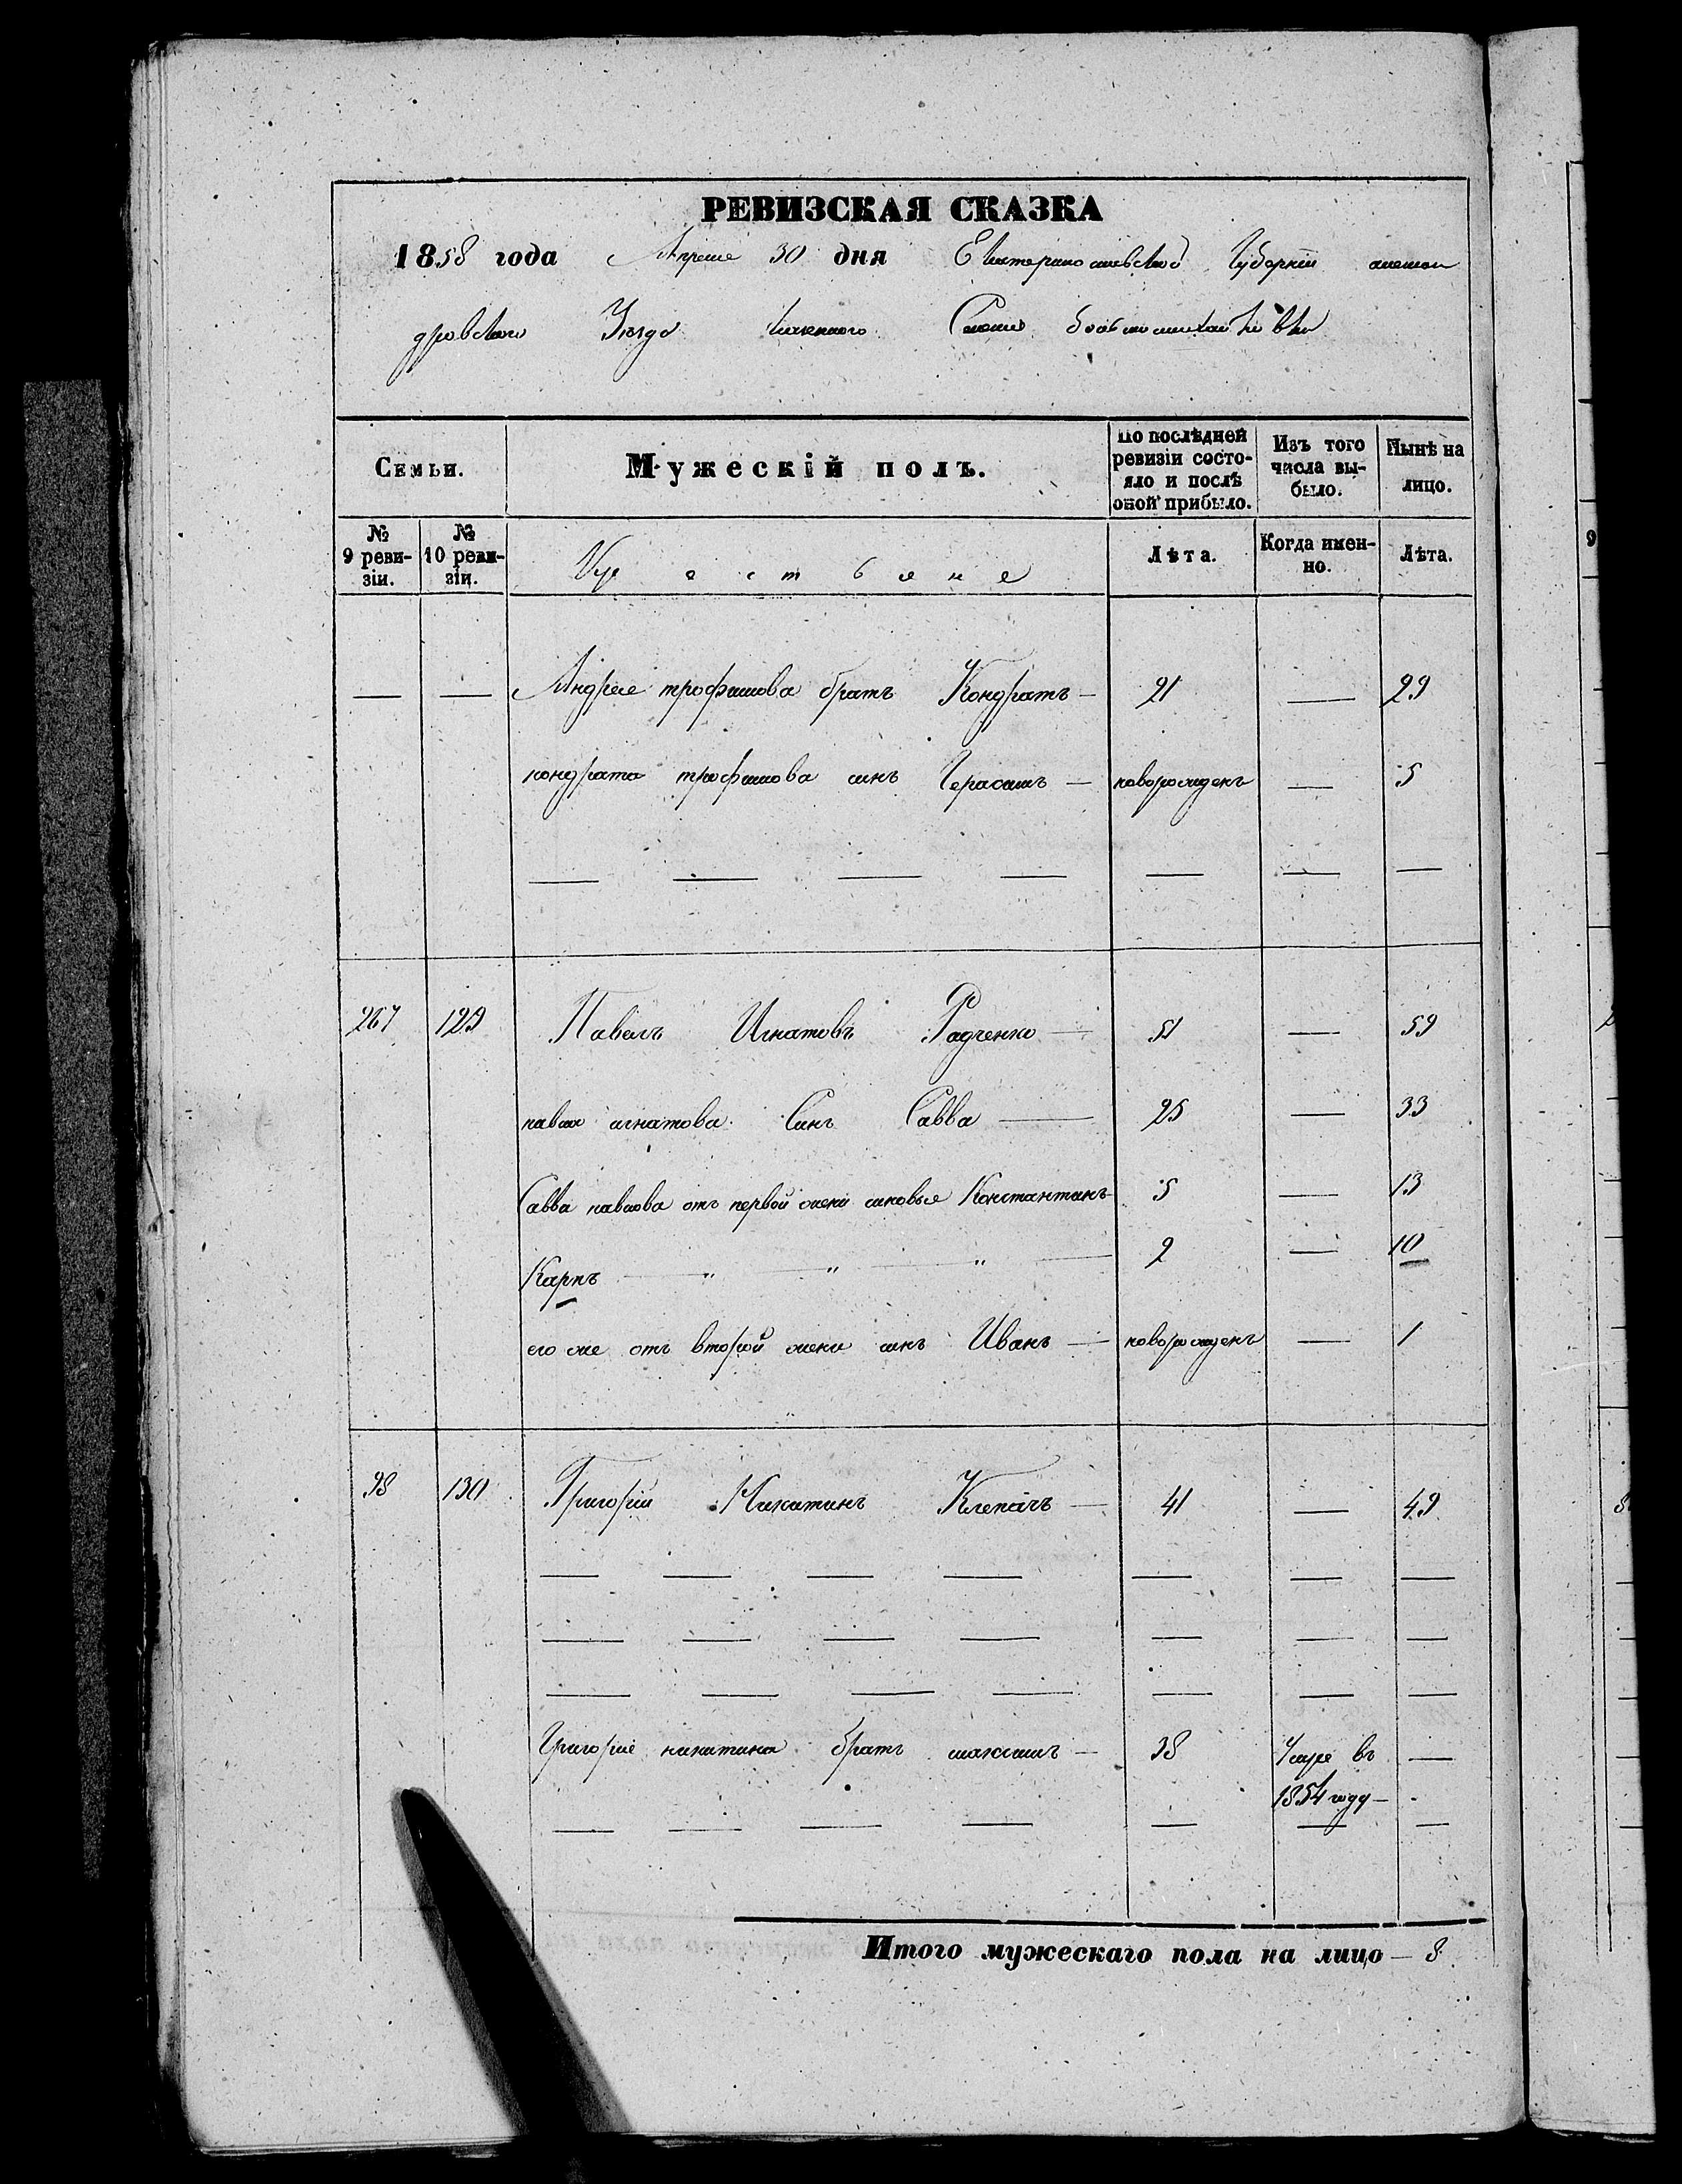 РЕВИЗСКАЯ СКАЗКА
1858 года Апреле 30 дня Екатеринославской Губернии алексан
дровскаго Уезда казенного Селения большемихайловки
Семьи. Мужескій полъ. По послѣдней ревизіи состояло и послѣ оной прибыло. Изъ того числа выбыло. Нынѣ на лицо.
№ 9 ревизіи. № 10 ревизіи. Крестьяне Лѣта. Когда именно. Лѣта.
— — Андрея трофимова братъ Кондратъ — 21 — 29
кондрата трофимова синъ Герасимъ — новорожденъ — 5
— — — — — — —
267 129 Павелъ Игнатовъ Радченко — 51 — 59
павла игнатова Синъ Савва — 25 — 33
Савва павлова отъ первой жени синовья Константинъ 5 — 13
Карпъ — " — " — " — 2 — 10
его же отъ второй жени синъ Иванъ — новорожденъ — 1
98 130 Григорій Никитинъ Клепачъ — 41 — 49
— — — — — — —
— — — — — — —
— — — — — — —
Григорія никитина братъ максимъ — 38 Умре въ —
1854 году —
— — — — — — —
Итого мужескаго пола на лицо — 8
9